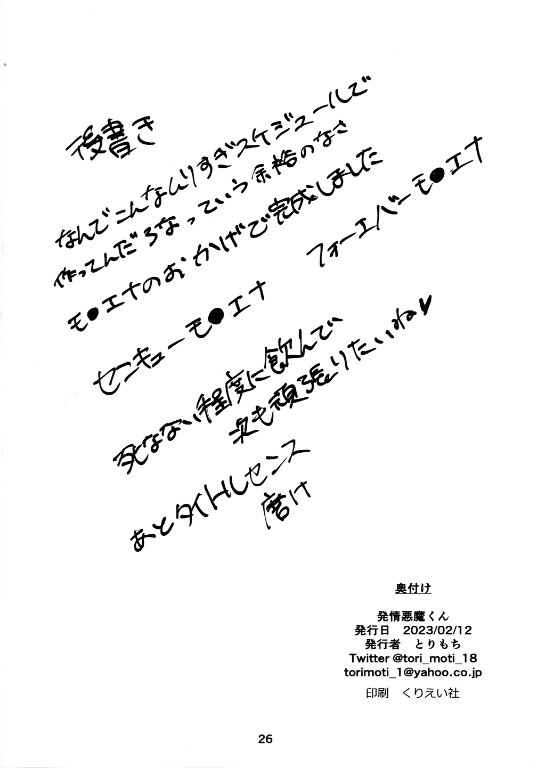 後書き
なんでこんなムリすぎスケジュールで
作ってんだろなっていう余裕のなさ
モ●エナのおかげで完成しました
センキューモ●エナ　フォーエバーモ●エナ
死なない程度に飲んで、
次も頑張りたいね♥
あとタイトルセンス
磨け
奥付け
発情悪魔くん
発行日　2023/02/12
発行者　とりもち
Twitter @tori_moti_18
torimoti_1@yahoo.co.jp
印刷　くりえい社
26